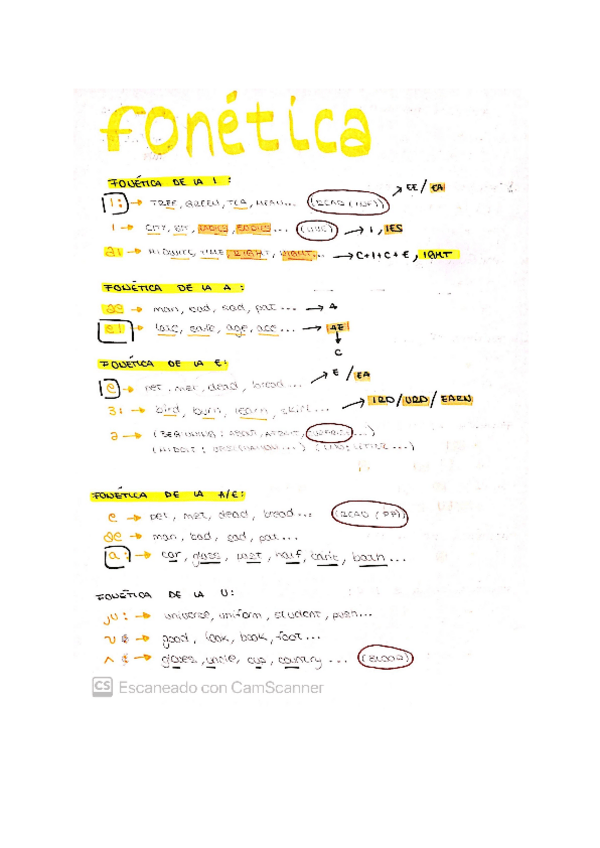 fonética
FONÉTICA DE LA I:
I: → TREE, QUEEN, TEA, MEAN... (READ (INF)) → EE / EA
I → CITY, (LIVE) → I, IES
aI → TIME, RIGHT, NIGHT... → C+I+C+E, IGHT
FONÉTICA DE LA A:
ae → man, bad, sad, pat... → A
eI → late, age, ... → AE
C
FONÉTICA DE LA E:
e → pet, met, dead, bread... → E / EA
3: → bird, burn, learn, skirt... → IRD/URD/EARN
ə → (BEGINNING: ABOUT, ...)
(MIDDLE: ...) (END: LETTER...)
FONÉTICA DE LA A/E:
e → pet, met, dead, bread... (READ (PP))
ae → man, bad, sad, pat...
a: → car, glass, past, half, bath...
FONÉTICA DE LA U:
JU: → universe, uniform, student, push...
good, look, book, foot...
gloves, uncle, cup, country... (BLOOD)
CS Escaneado con CamScanner